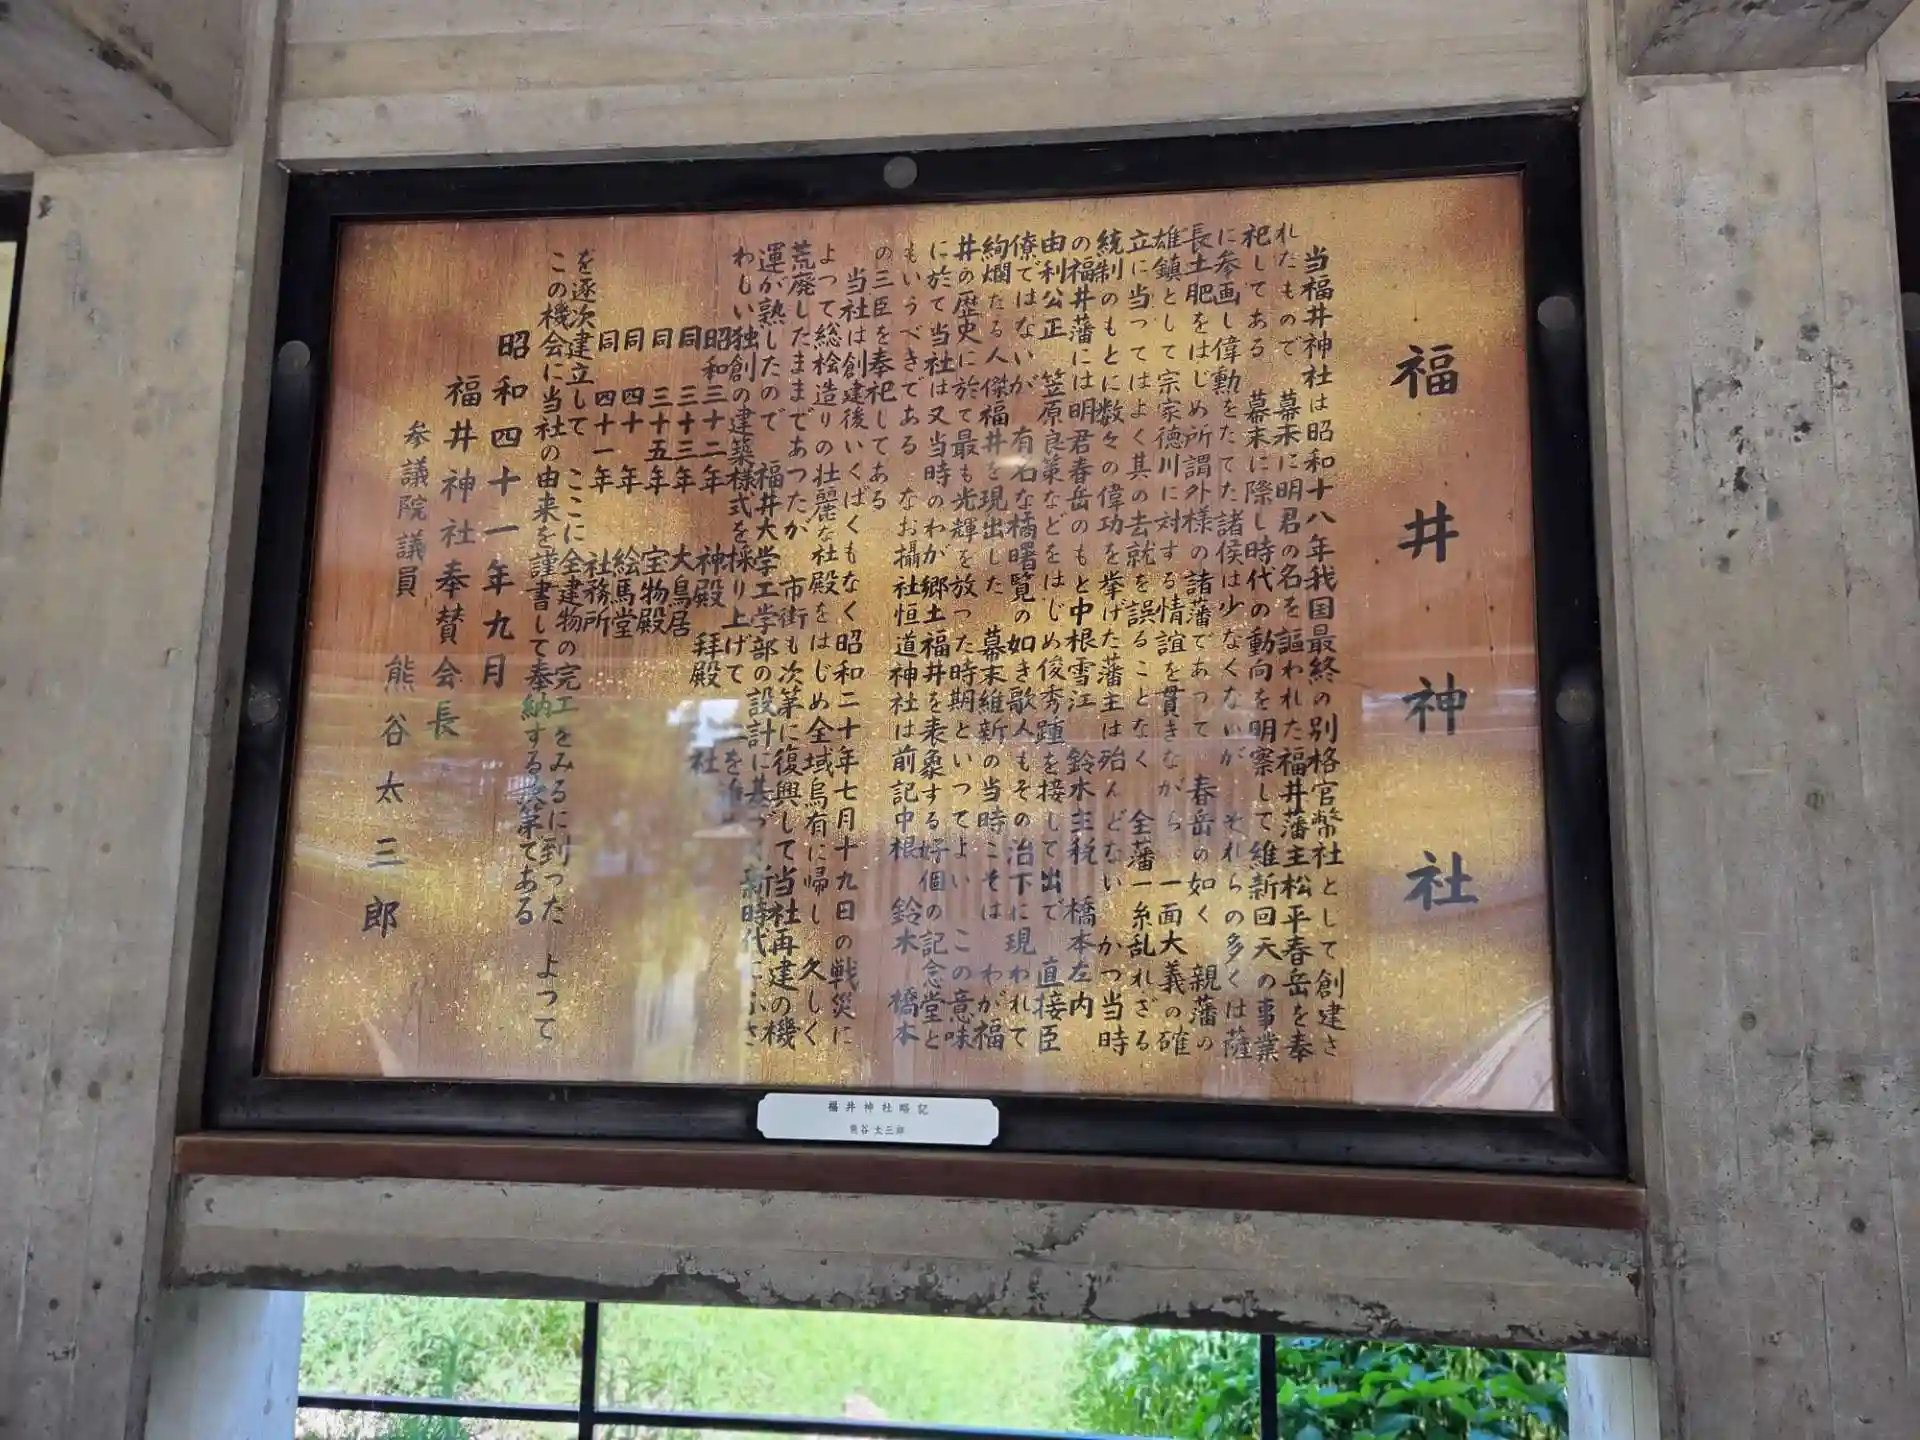 福井神社
当福井神社は昭和十八年我国最終の別格官幣社として創建さ
れたもので 幕末に明君の名を謳われた福井藩主松平春岳を奉
祀してある 幕末に際し時代の動向を明察して維新回天の事業
に参画し偉勳をたてた諸侯は少なくないが それらの多くは薩
長土肥をはじめ所謂外様の諸藩であって 春岳の如く 親藩の
雄鎮として宗家徳川に対する情誼を貫きながら 一面大義の確
立に当ってはよく其の去就を誤ることなく 全藩一糸乱れざる
統制のもとに数々の偉功を挙げた藩主は殆んどない かつ当時
の福井藩には明君春岳のもと中根雪江 鈴木主税 橋本左内
由利公正 笠原良策などをはじめ俊秀踵を接して出で 直接臣
僚ではないが 有名な橘曙覧の如き歌人もその治下に現われて
絢爛たる人傑福井を現出した 幕末維新の当時こそは わが福
井の歴史に於て最も光輝を放った時期といつてよい この意味
に於て当社は又当時のわが郷土福井を表象する好個の記念堂と
もいうべきである なお攝社恒道神社は前記中根 鈴木 橋本
の三臣を奉祀してある
当社は創建後いくばくもなく昭和二十年七月十九日の戦災に
よって総桧造りの壮麗な社殿をはじめ全域烏有に帰し 久しく
荒廃したままであつたが 市街も次第に復興して当社再建の機
運が熟したので 福井大学工学部の設計に基づく新時代にふさ
わしい独創の建築様式を採り上げて
昭和三十二年 神殿 拝殿 社
同 三十三年 大鳥居
同 三十五年 宝物殿
同 四十年 絵馬堂
同 四十一年 社務所
を逐次建立して ここに全建物の完工をみるに到った よって
この機会に当社の由来を謹書して奉納する次第てある
昭和四十一年九月
福井神社奉賛会長
参議院議員 熊谷太三郎
福井神社略記
熊谷太三郎